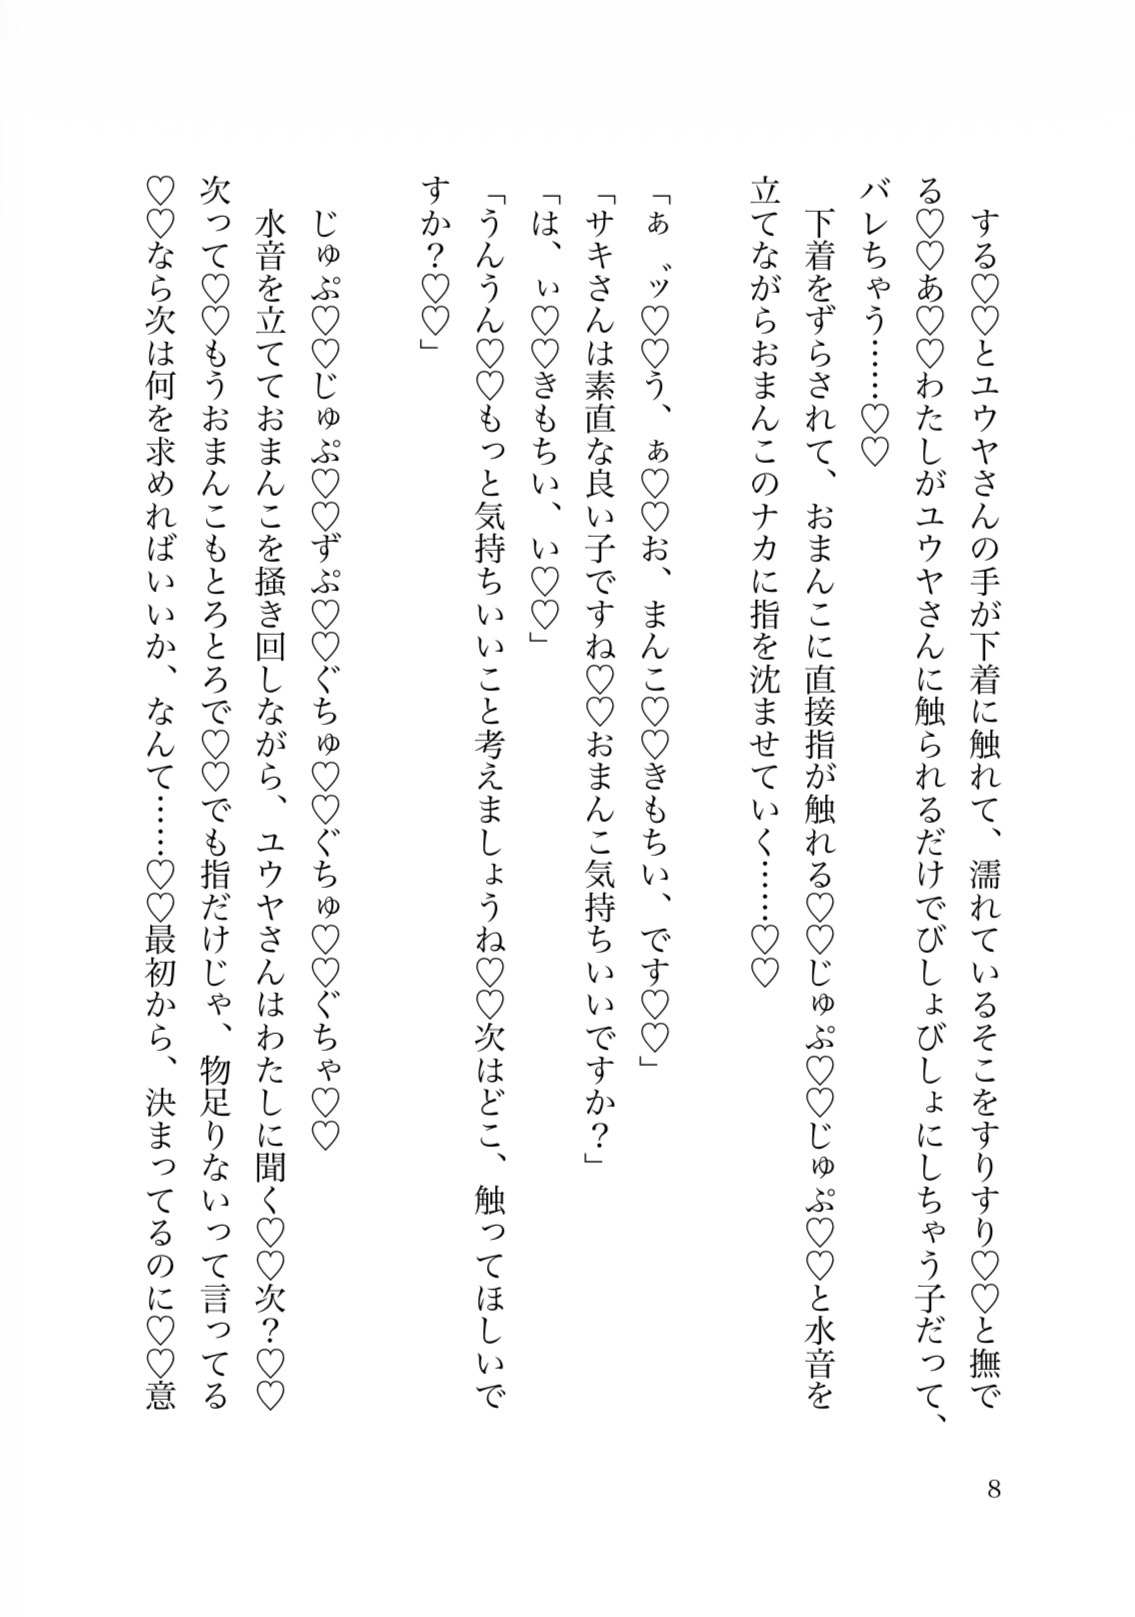 する♡♡とユウヤさんの手が下着に触れて、濡れているそこをすりすり♡♡と撫で
る♡♡あ♡♡わたしがユウヤさんに触られるだけでびしょびしょにしちゃう子だって、
バレちゃう……♡♡
下着をずらされて、おまんこに直接指が触れる♡♡じゅぷ♡♡じゅぷ♡♡と水音を
立てながらおまんこのナカに指を沈ませていく……♡♡
「ぁ゛ッ♡♡う、ぁ♡♡お、まんこ♡♡きもちい、です♡♡」
「サキさんは素直な良い子ですね♡♡おまんこ気持ちいいですか？」
「は、ぃ♡♡きもちい、い♡♡」
「うんうん♡♡もっと気持ちいいこと考えましょうね♡♡次はどこ、触ってほしいで
すか？♡♡」
じゅぷ♡♡じゅぷ♡♡ずぷ♡♡ぐちゅ♡♡ぐちゅ♡♡ぐちゃ♡♡
水音を立てておまんこを掻き回しながら、ユウヤさんはわたしに聞く♡♡次？♡♡
次って♡♡もうおまんこもとろとろで♡♡でも指だけじゃ、物足りないって言ってる
♡♡なら次は何を求めればいいか、なんて……♡♡最初から、決まってるのに♡♡意
8